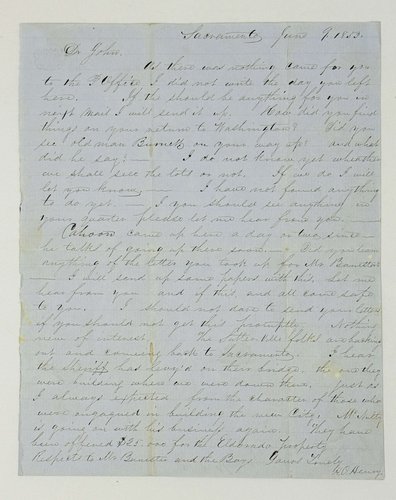 Sacramento June 9, 1853.
Dr John.
As there was nothing came for you
to the P Office, I did not write the day you left
here. If the should be anything for you in
next mail I will send it up. How did you find
things on your return to Washington? Did you
see old man Burnett on your way up? and what
did he say? — I do not know yet wheather
we shall sell the lots or not. If we do I will
let you know. — I have not found anything
to do yet. — If you should see anything in
your quarter please let me hear from you. —
Calhoon came up here a day or two since —
he talks of going up there soon. — Did you learn
anything of the letter you took up for Mr Banister
— I will send up some papers with this. Let me
hear from you and if this, and all come safe
to you. I should not dare to send your letters
if you should not get this promptly. Nothing
new of interest. The Sutter ville folks are backing
out and comeing back to Sacramento. I hear
the sheriff has levy'd on their bridge. the one they
were building where we were down there. Just as
I always expected from the character of those who
were engaged in building the new City. Mr
is going on with his business again. They have
been offered $25.000 for the Eldorado Property
Respects to Mr Banister and the Boys Yours Truly
Henry